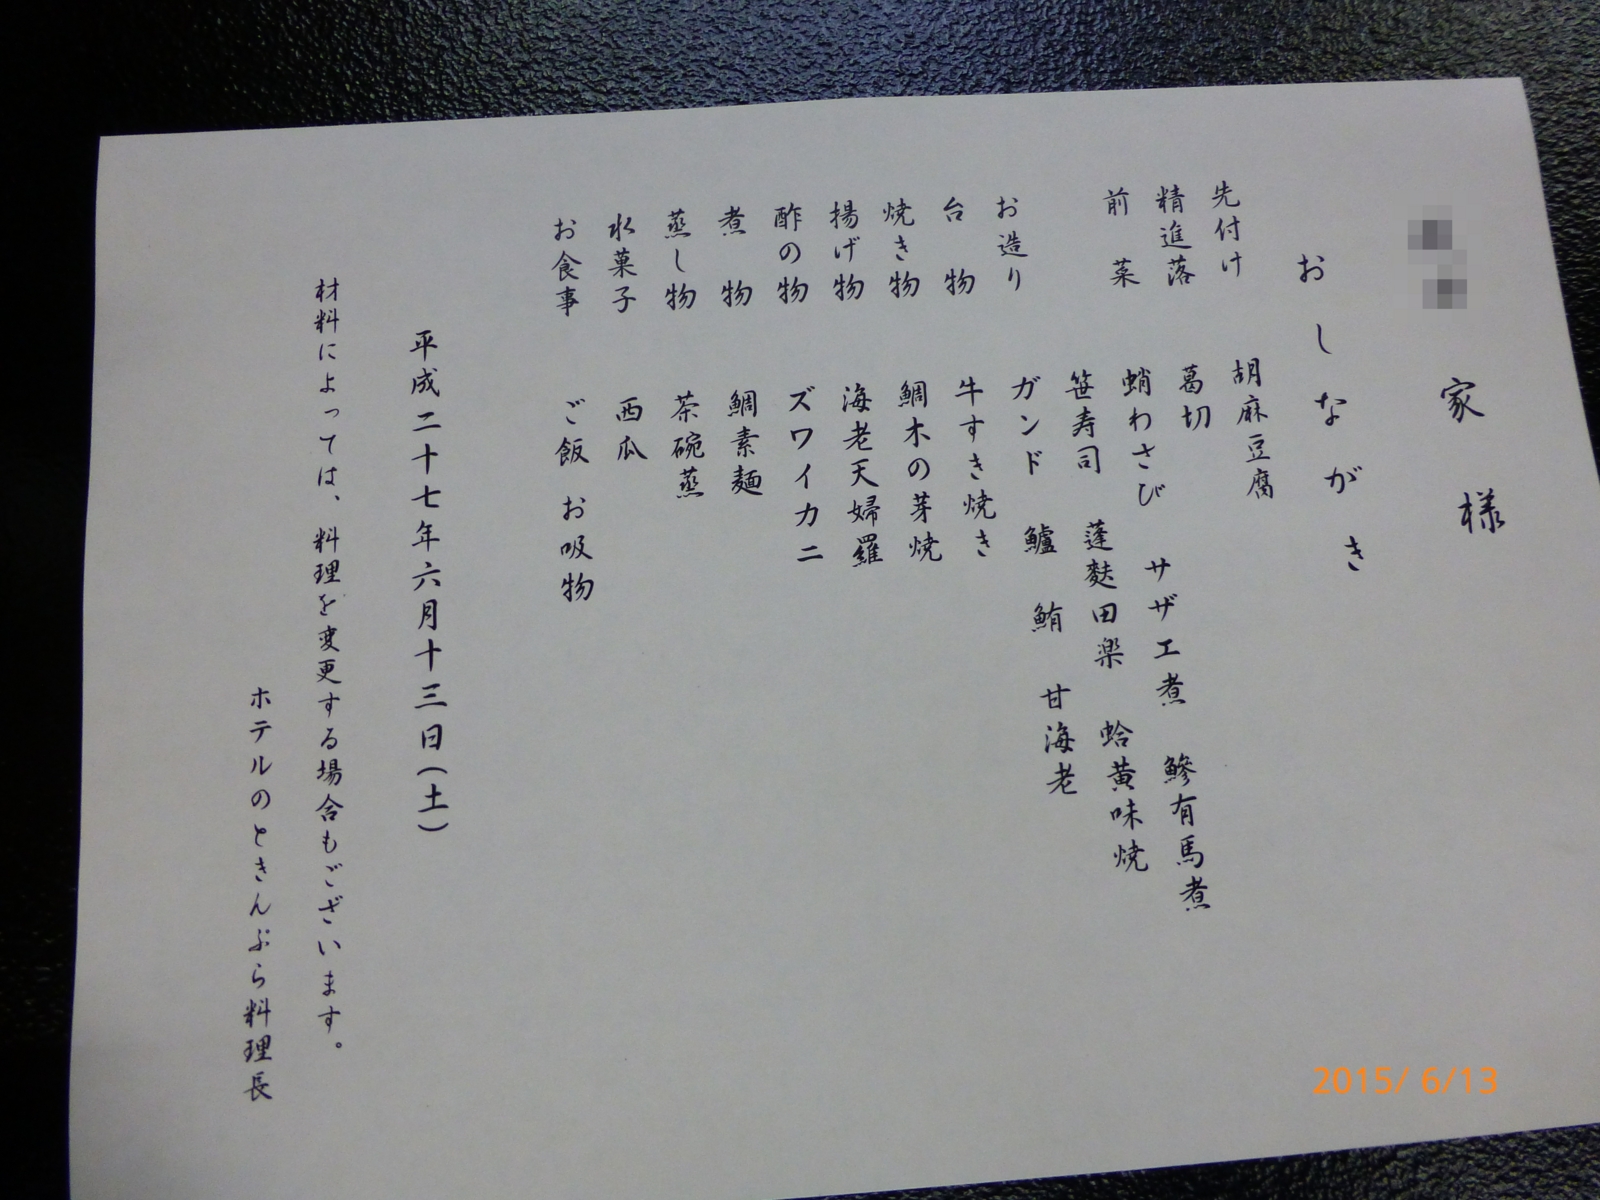 家 様
おしながき
先付け 胡麻豆腐
精進落 葛切
前菜 蛸わさび サザエ煮 鯵有馬煮
笹寿司 蓬麩田楽 蛤黄味焼
お造り ガンド 鱸 鮪 甘海老
台物 牛すき焼き
焼き物 鯛木の芽焼
揚げ物 海老天婦羅
酢の物 ズワイカニ
煮物 鯛素麺
蒸し物 茶碗蒸
水菓子 西瓜
お食事 ご飯 お吸物
平成二十七年六月十三日(土)
材料によっては、料理を変更する場合もございます。
ホテルのときんぷら料理長
2015/ 6/13